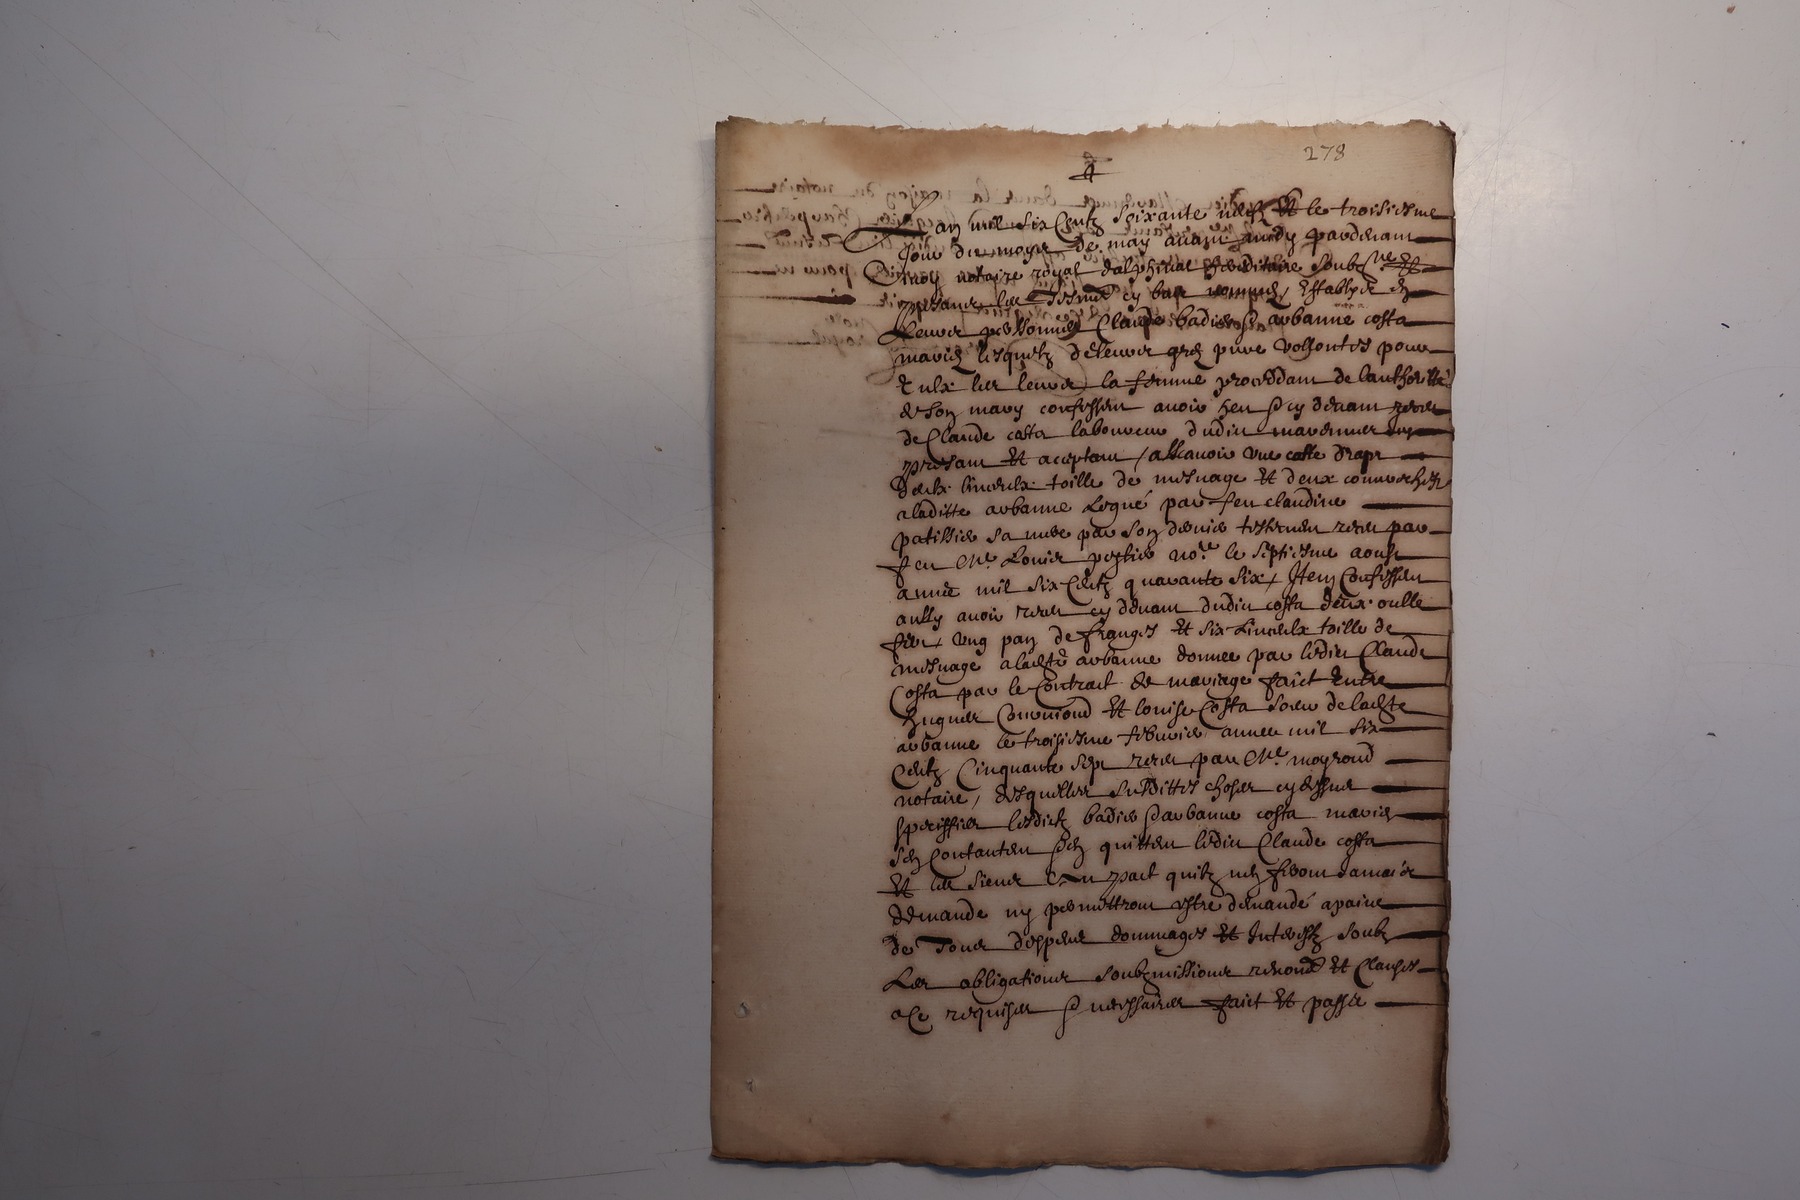 278
L'an mil six Centz soixante neuf Et le troisiesme
Jour du moys de may avant midy pardevant
moy notaire royal dalphinal hereditaire soubzne Et
presantz les Tesmes cy bas nommes, Establys en
leurs personnes Claude badier & arbanne costa
maries lesquelz de leurs gres pure vollontes pour
Eulx les leurs la femme proceddant de lauthoritté
de son mary confessent avoir heu & cy devant receu
de Claude costa laboureur dudict
presant Et aceptant / assavoir une cotte drapt
deulx linceulx toille de mesnage Et deux couvrechefz
a laditte arbanne Legué par feu claudine
patissier sa mere par son dernier testement receu par
feu Me Louis nore le septiesme aoust
année mil six Centz quarante six, Item Confessent
aussy avoir receu cy devant dudict costa deux oulle
fer, ung pan de franges Et six Linceulx toille de
mesnage a ladte arbanne donnee par ledict Claude
Costa par le Contract de mariage faict Entre
hugues Et louise Costa soeur de ladte
arbanne le troisiesme febvrier annee mil six
Centz Cinquante sept receu par Me moyroud
notaire, desquelles susdittes choses cy dessus
speciffiés lesdictz badier & arbanne costa maries
sen Contantent & en quittent ledict Claude costa
Et les siens En pact quilz nen feront Jamais
demande ny permettront estre demandé a paine
de Tous despens dommages Et Interestz soubz
Les obligations soubzmissions renonces Et Clauses
a Ce requises & necessaires faict Et passé